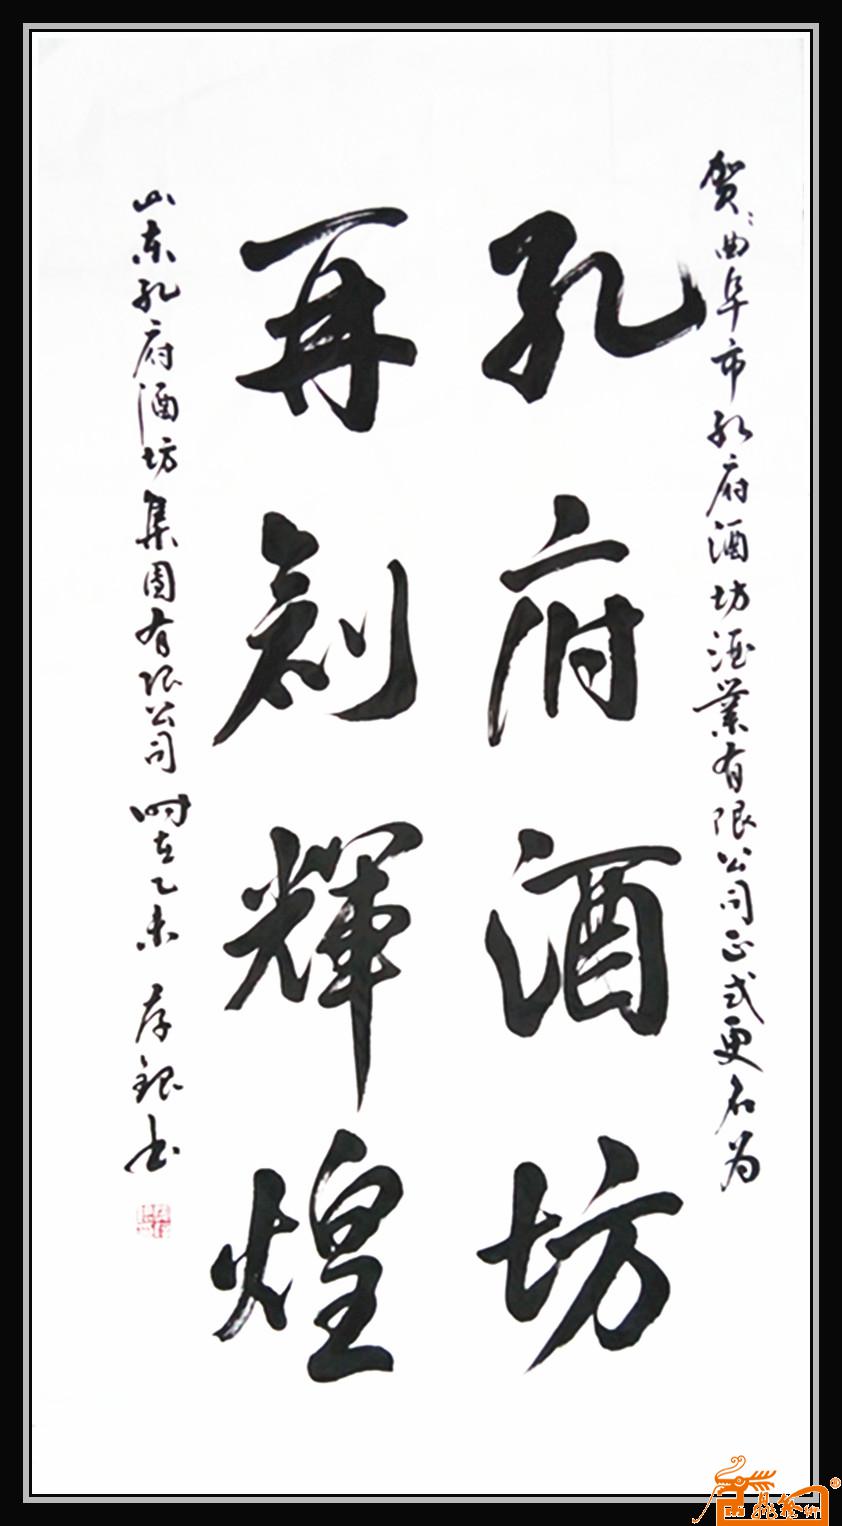 贺:曲阜市孔府酒坊酒業有限公司正式更名为
孔府酒坊
再创輝煌
山东孔府酒坊集团有限公司 时在乙未 存银书